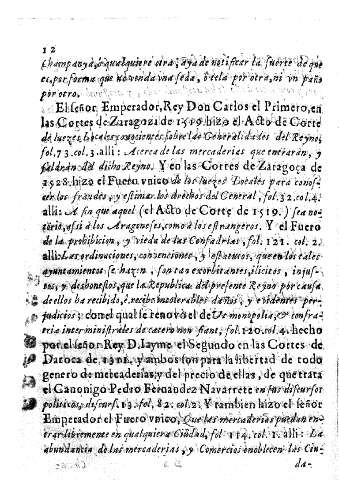 12
Champanya, o qualquiere otra; aya de notificar la suerte de que
es, por forma que no venda vna seda, ò tela por otra, ni vn paño
por otro.
El señor Emperador, Rey Don Carlos el Primero, en
las Cortes de Zaragoza de 1519. hizo el Acto de Corte
de Iuezes Locales conocientes sobre las Generalidades del Reyno,
fol. 73. col. 3. alli: Acerca de las mercaderias que entraràn, y
saldràn del dicho Reyno. Y en las Cortes de Zaragoça de
1528. hizo el Fuero vnico de los Iuezes Locales para
los fraudes, y estimar los drechos del General, fol. 32. col. 4.
alli: A fin que aquel (el Acto de Corte de 1519.) sea no-
torio, assi à los Aragoneses, como à los estrangeros. Y el Fuero
de la prohibicion, y vieda de las Confadrias, fol. 121. col. 2.
alli: Las ordinaciones, convenciones, y estatutos, que en los tales
ayuntamientos se hazen, son tan exorbitantes, ilicitos, injus-
tos, y deshonestos, que la Republica del presente Reyno por causa
de ellos ha recibido, è recibe intolerables daños, y evidentes per-
judicios; con el qual se renovò el de Vt monopolia, & confra-
tria inter ministrales de cætero non fiant, fol. 120. col. 4. hecho
por el señor Rey D. Iayme el Segundo en las Cortes de
Daroca de 1311. y ambos son para la libertad de todo
genero de mercaderias, y del precio de ellas, de que trata
el Canonigo Pedro Fernandez Navarrete en sus discursos
politicos, discurs. 13. fol. 82. col. 2. Y tambien hizo el señor
Emperador el Fuero vnico, Que las mercaderias puedan en-
trar libremente en qualquiera Ciudad, fol. 114. col. 1. alli: La
abundancia de las mercaderias, y Comercios enoblecen las Ciu-
da-